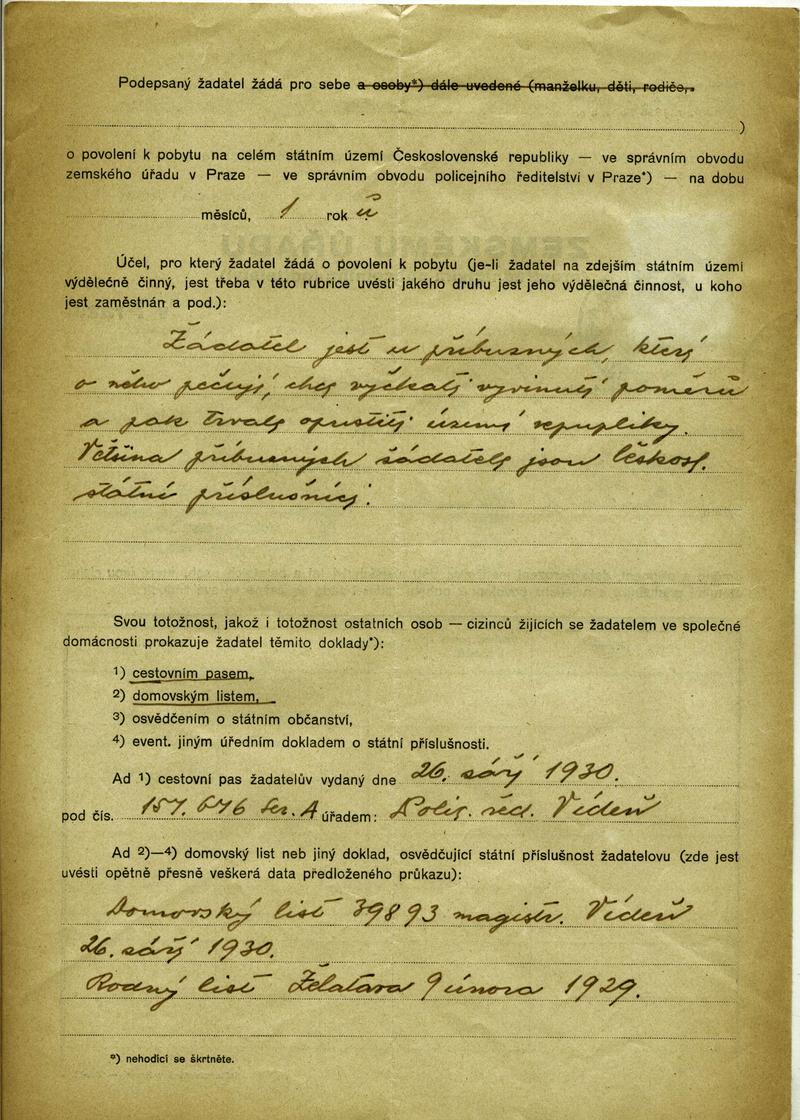 Podepsaný žadatel žádá pro sebe a osoby*) dále uvedené (manželku, děti, rodiče,
)
o povolení k pobytu na celém státním území Československé republiky — ve správním obvodu
zemského úřadu v Praze — ve správním obvodu policejního ředitelství v Praze*) — na dobu
měsíců, 1 rok ů
Účel, pro který žadatel žádá o povolení k pobytu (je-li žadatel na zdejším státním území
výdělečně činný, jest třeba v této rubrice uvésti jakého druhu jest jeho výdělečná činnost, u koho
jest zaměstnán a pod.):
Žádatel jest u příbuzných, který
o něho pečují, chce vyčkati vyvinutí poměrů
a pak trvale opustiti území republiky.
Většina příbuzných žádatele jsou českosl.
státní příslušníci.
Svou totožnost, jakož i totožnost ostatních osob — cizinců žijících se žadatelem ve společné
domácnosti prokazuje žadatel těmito doklady*):
1) cestovním pasem,
2) domovským listem,
3) osvědčením o státním občanství,
4) event. jiným úředním dokladem o státní příslušnosti.
Ad 1) cestovní pas žadatelův vydaný dne 26. září 1930.
pod čís. 157.676 Ser. A úřadem: Polic. řed. Vídeň
Ad 2)—4) domovský list neb jiný doklad, osvědčující státní příslušnost žadatelovu (zde jest
uvésti opětně přesně veškerá data předloženého průkazu):
Domovský list 39893 magistr. Vídeň
26. září 1930.
Rodný list 9 února 1929.
*) nehodící se škrtněte.